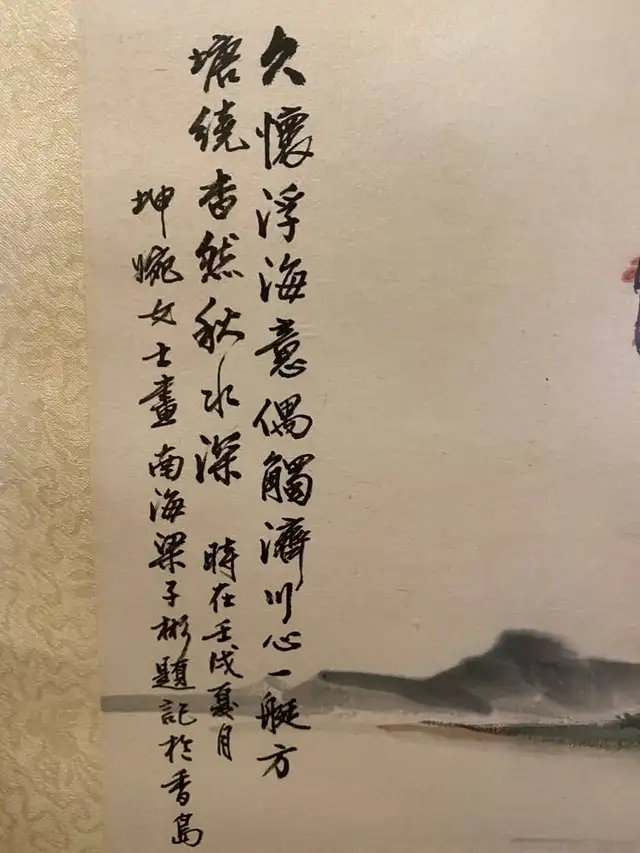 久懷浮海意偶觸濟川心一艇方
塘繞杳然秋水深 時在壬戌夏月
坤婉女士畫 南海梁子彬題記於香島